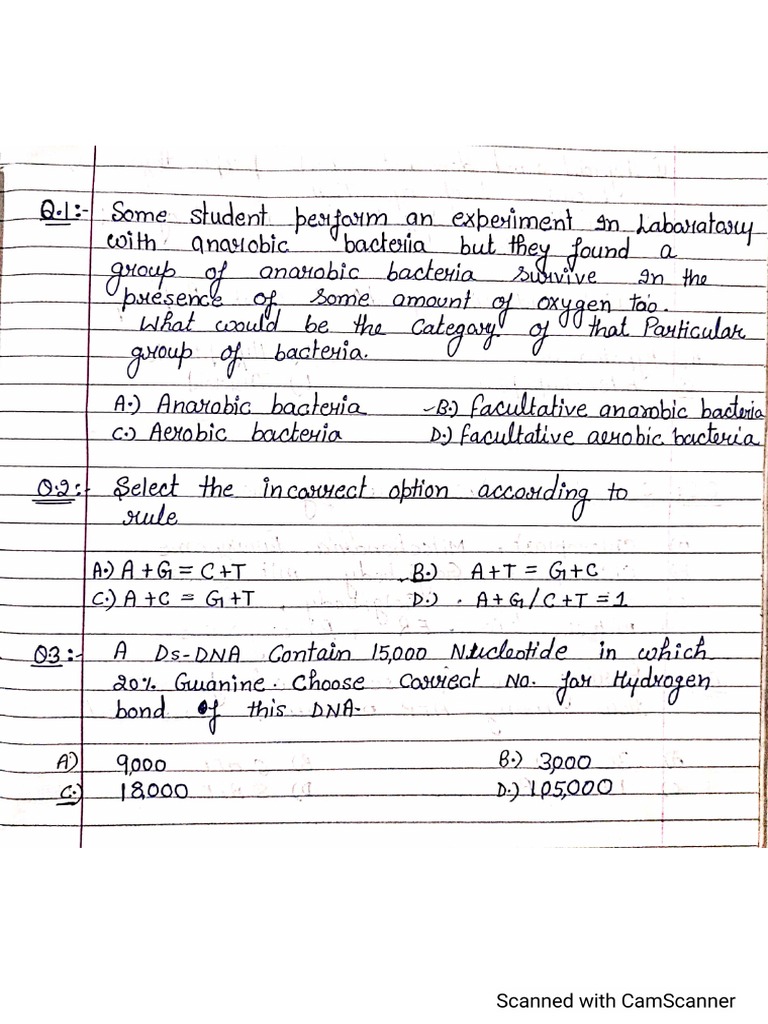 Q.1:- Some student perform an experiment In Laboratory
with anarobic bacteria but they found a
group of anarobic bacteria survive In the
presence of some amount of oxygen too.
What would be the Category of that Particular
group of bacteria.
A.) Anarobic bacteria B.) facultative anarobic bacteria
C.) Aerobic bacteria D.) facultative aerobic bacteria
Q.2:- Select the incorrect option according to
rule
A.) A+G = C+T B.) A+T = G+C
C.) A+C = G+T D.) A+G/C+T = 1
Q3:- A Ds-DNA Contain 15,000 Nucleotide in which
20% Guanine. Choose Correct No. for Hydrogen
bond of this DNA-
A) 9,000 B.) 3,000
C.) 18,000 D.) 105,000
Scanned with CamScanner